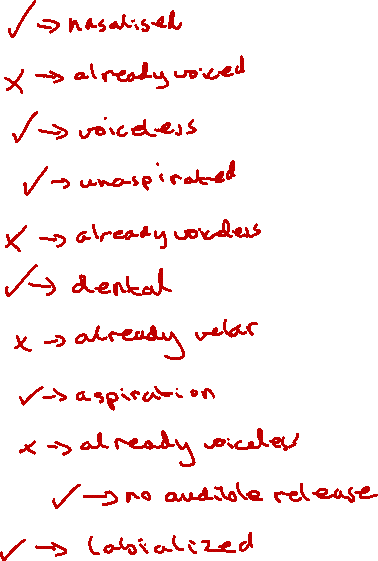 ✓ → nasalised
✗ → already voiced
✓ → voiceless
✓ → unaspirated
✗ → already voiceless
✓ → dental
✗ → already velar
✓ → aspiration
✗ → already voiceless
✓ → no audible release
✓ → labialized